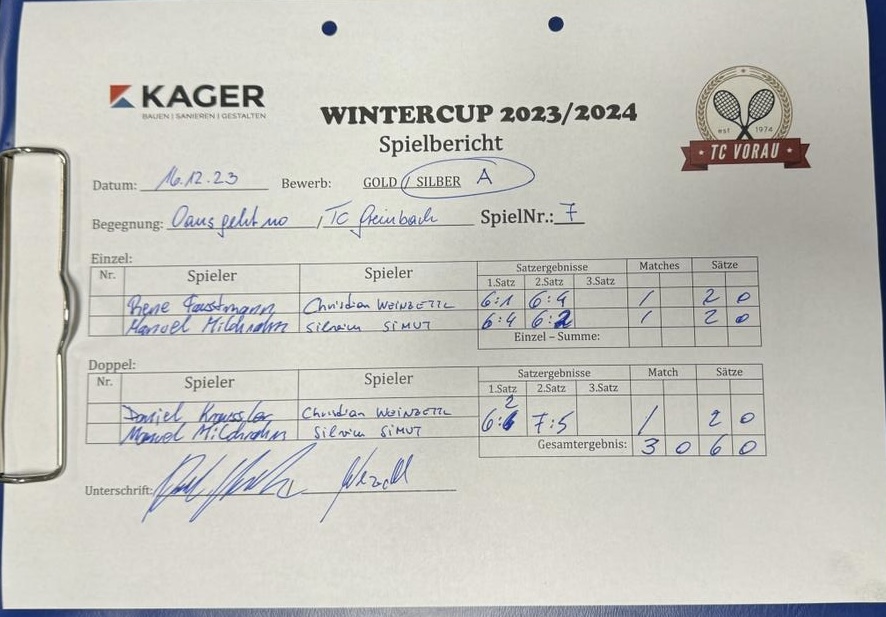 KAGER
BAUEN | SANIEREN | GESTALTEN
WINTERCUP 2023/2024
Spielbericht
est 1974
TC VORAU
Datum: 16.12.23 Bewerb: GOLD / SILBER A
Begegnung: Daus geht no / TC Greinbach SpielNr.: 7
Einzel:
Nr. Spieler Spieler Satzergebnisse Matches Sätze
1.Satz 2.Satz 3.Satz
Rene Faustmann Christian WEINZETTL 6:1 6:4 / 2 0
Manuel Milchrahm Silviu SIMUT 6:4 6:2 / 2 0
Einzel – Summe:
Doppel:
Nr. Spieler Spieler Satzergebnisse Match Sätze
1.Satz 2.Satz 3.Satz
Daniel Kraussler Christian WEINZETTL 6:2 7:5 / 2 0
Manuel Milchrahm Silviu SIMUT
Gesamtergebnis: 3 0 6 0
Unterschrift: